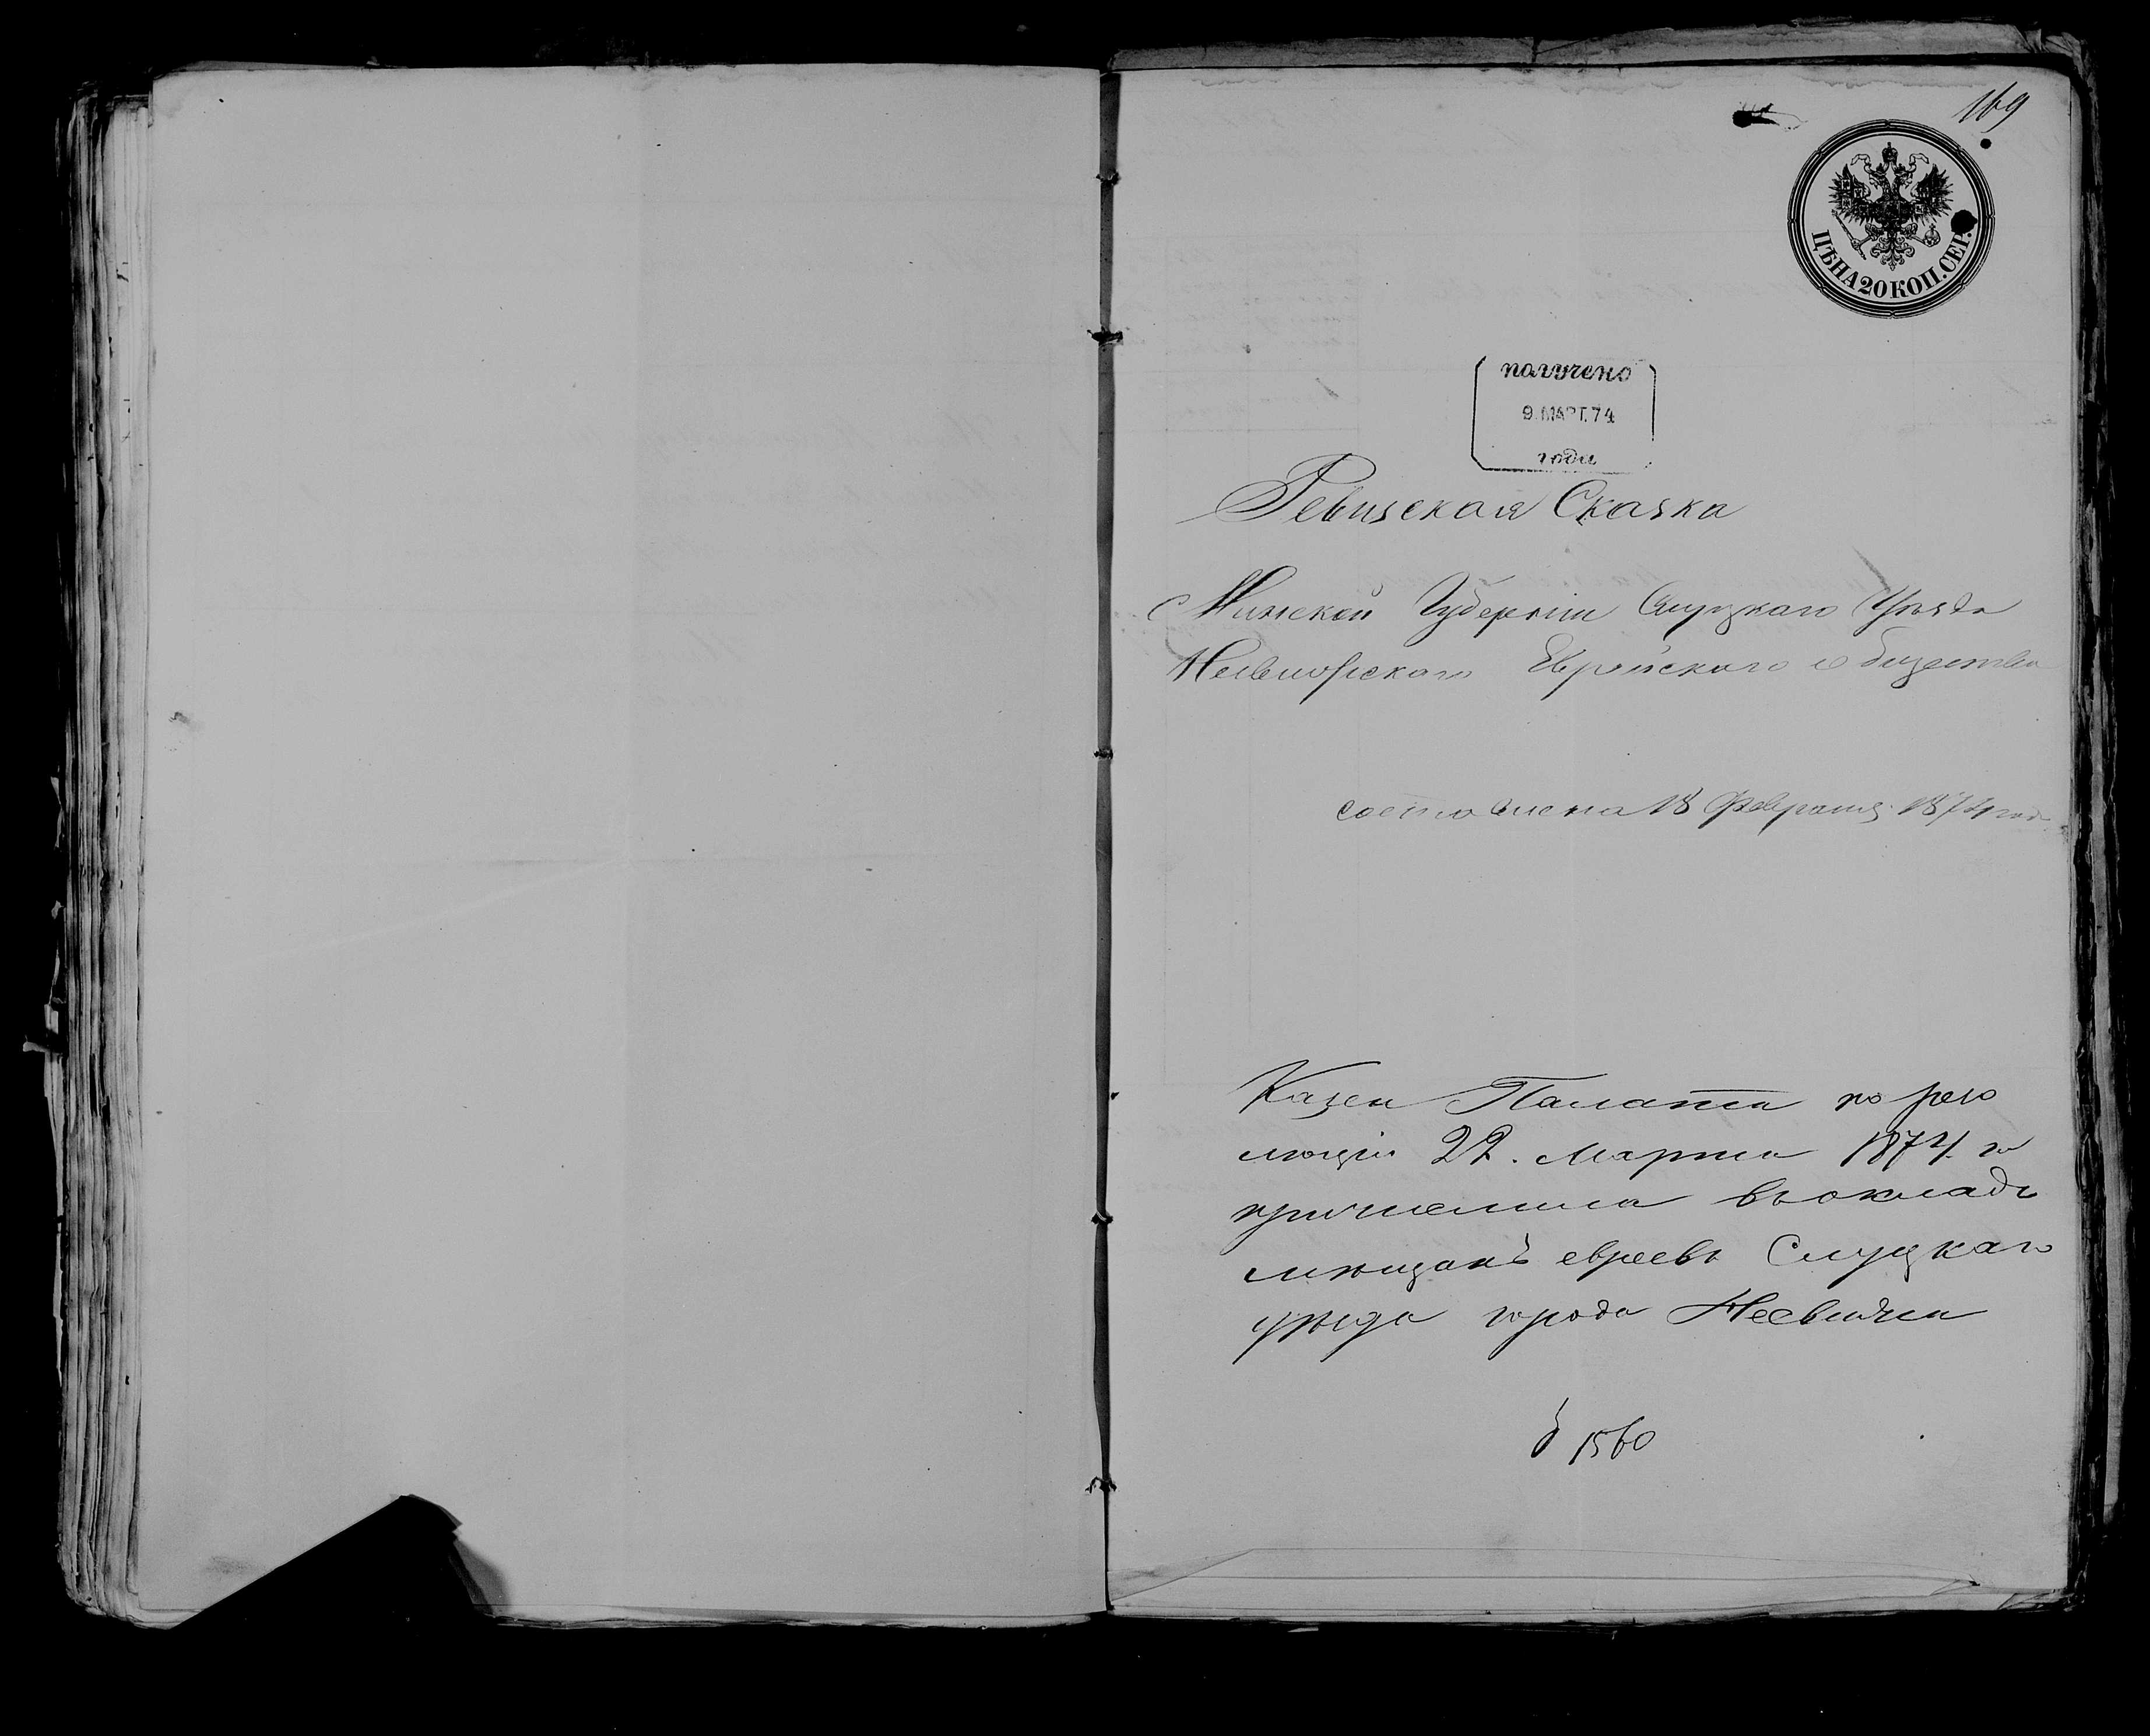 169
ЦѢНА 20 КОП. СЕР.
получено
9 МАРТ. 74
года
Ревизская Сказка
Минской Губерніи Слуцкаго Уѣзда
Несвижскаго Еврейскаго общества
составлена 18 Февраля 1874 года
Казен Палата по резо
люціи 22. Марта 1874 го
причислила въ окладъ
мѣщанъ евреевъ Слуцкаго
уѣзда города Несвижа
1560